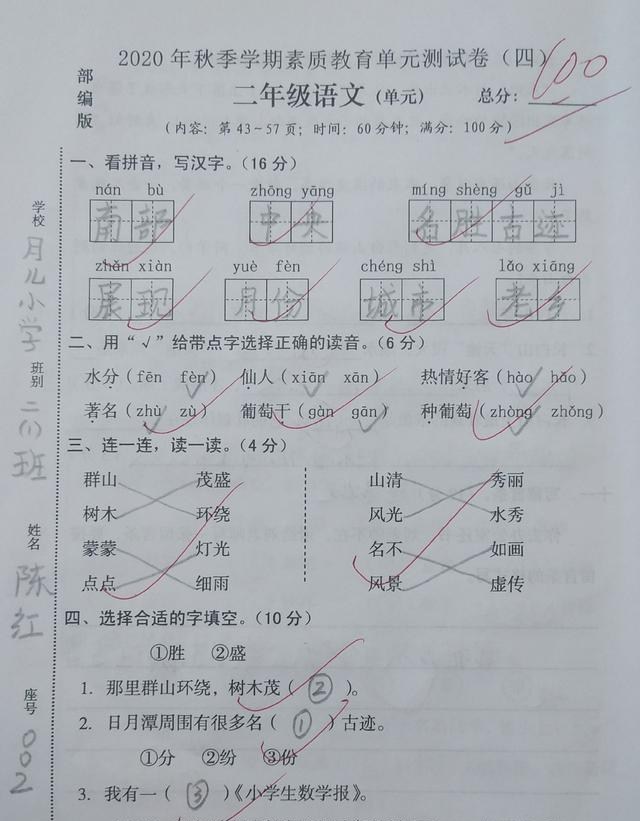 2020年秋季学期素质教育单元测试卷（四）
部编版
二年级语文（单元） 总分：100
（内容：第43~57页；时间：60分钟；满分：100分）
学校 月儿小学 班别 二(1)班 姓名 陈红 座号 002
一、看拼音，写汉字。（16分）
nán bù zhōng yāng míng shèng gǔ jì
南部 中央 名胜古迹
zhǎn xiàn yuè fèn chéng shì lǎo xiāng
展现 月份 城市 老乡
二、用“√”给带点字选择正确的读音。（6分）
水分（fēn fèn√） 仙人（xiān√ xān） 热情好客（hào√ hǎo）
著名（zhù√ zù） 葡萄干（gàn gān√） 种葡萄（zhòng√ zhǒng）
三、连一连，读一读。（4分）
群山 茂盛 山清 秀丽
树木 环绕 风光 水秀
蒙蒙 灯光 名不 如画
点点 细雨 风景 虚传
四、选择合适的字填空。（10分）
①胜 ②盛
1. 那里群山环绕，树木茂（②）。
2. 日月潭周围有很多名（①）古迹。
①分 ②纷 ③份
3. 我有一（③）《小学生数学报》。